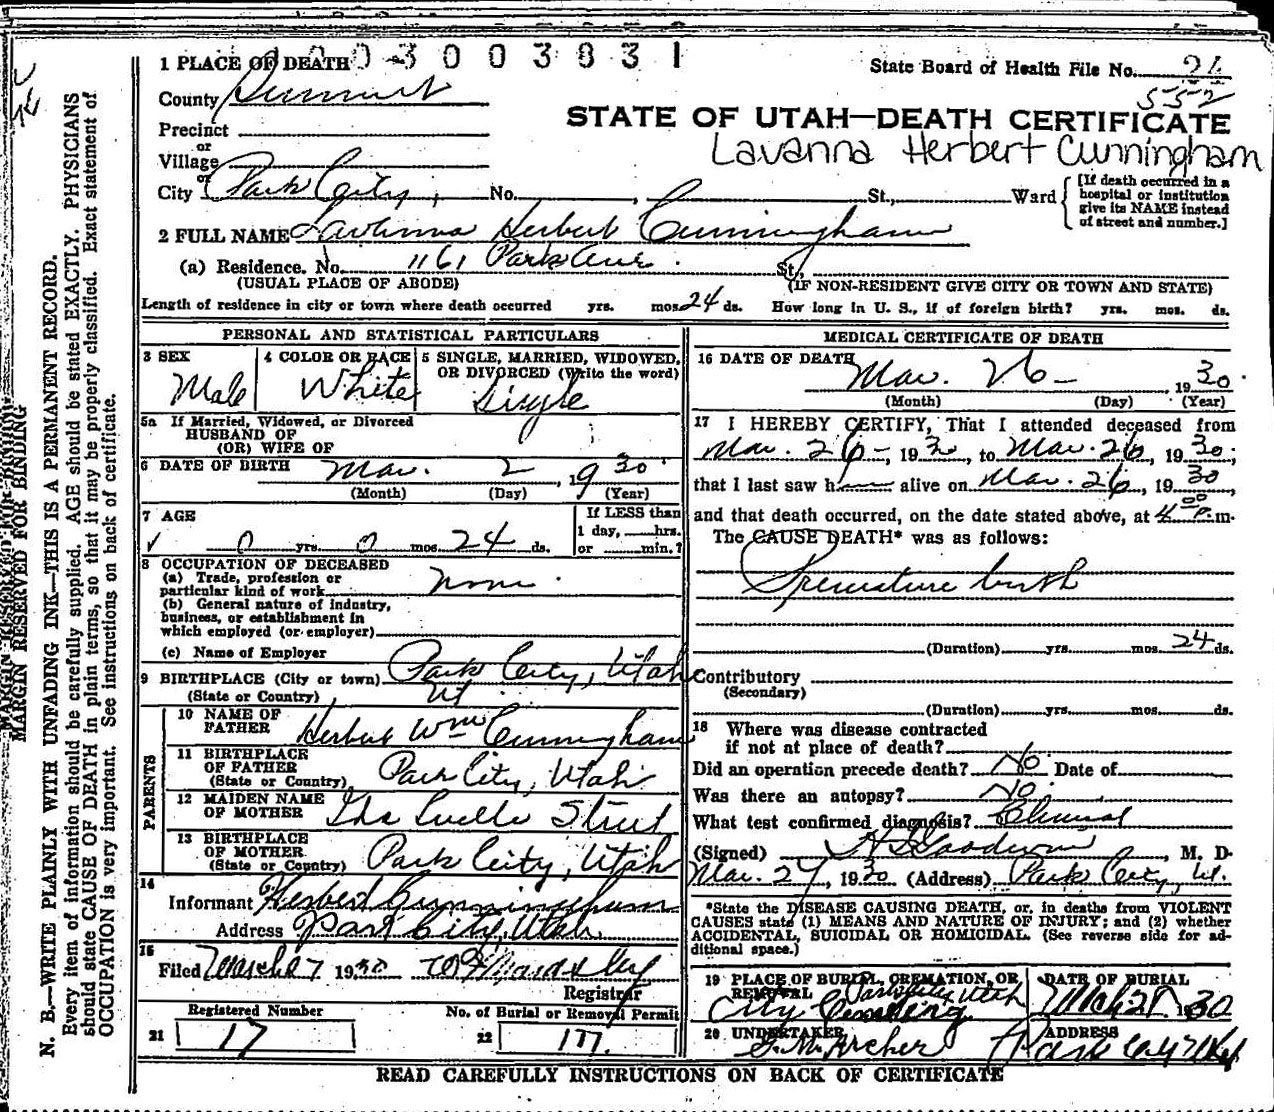 003003831
1 PLACE OF DEATH
State Board of Health File No. 26
552
County Summit
STATE OF UTAH—DEATH CERTIFICATE
Precinct
or
Lavanna Herbert Cunningham
Village
or
City Park City, No. , St., Ward
[If death occurred in a hospital or institution give its NAME instead of street and number.]
2 FULL NAME Lavanna Herbert Cunningham
(a) Residence. No. 1161 Park Ave. St.,
(USUAL PLACE OF ABODE) (IF NON-RESIDENT GIVE CITY OR TOWN AND STATE)
Length of residence in city or town where death occurred yrs. mos. 24 ds. How long in U. S., if of foreign birth? yrs. mos. ds.
PERSONAL AND STATISTICAL PARTICULARS
3 SEX
Male
4 COLOR OR RACE
White
5 SINGLE, MARRIED, WIDOWED,
OR DIVORCED (Write the word)
Single
5a If Married, Widowed, or Divorced
HUSBAND OF
(OR) WIFE OF
6 DATE OF BIRTH Mar. 2, 1930
(Month) (Day) (Year)
7 AGE
0 yrs. 0 mos. 24 ds.
If LESS than
1 day, hrs.
or min.?
8 OCCUPATION OF DECEASED
(a) Trade, profession or
particular kind of work none
(b) General nature of industry,
business, or establishment in
which employed (or employer)
(c) Name of Employer
9 BIRTHPLACE (City or town) Park City, Utah
(State or Country) Ut
PARENTS
10 NAME OF
FATHER Herbert Wm Cunningham
11 BIRTHPLACE
OF FATHER Park City, Utah
(State or Country)
12 MAIDEN NAME
OF MOTHER Ida Luella Street
13 BIRTHPLACE
OF MOTHER Park City, Utah
(State or Country)
14
Informant Herbert Cunningham
Address Park City, Utah
15
Filed March 27 1930
Registrar
Registered Number
21 17
No. of Burial or Removal Permit
22 177
MEDICAL CERTIFICATE OF DEATH
16 DATE OF DEATH
Mar. 26 - 1930
(Month) (Day) (Year)
17 I HEREBY CERTIFY, That I attended deceased from
Mar. 26-, 1930, to Mar. 26, 1930;
that I last saw h alive on Mar. 26, 1930,
and that death occurred, on the date stated above, at 4 00 P. m.
The CAUSE DEATH* was as follows:
Premature birth
(Duration) yrs. mos. 24 ds.
Contributory
(Secondary)
(Duration) yrs. mos. ds.
18 Where was disease contracted
if not at place of death?
Did an operation precede death? No Date of
Was there an autopsy? No.
What test confirmed diagnosis? Clinical
(Signed) , M. D.
Mar. 27, 1930 (Address) Park City, Ut.
*State the DISEASE CAUSING DEATH, or, in deaths from VIOLENT
CAUSES state (1) MEANS AND NATURE OF INJURY; and (2) whether
ACCIDENTAL, SUICIDAL OR HOMICIDAL. (See reverse side for ad-
ditional space.)
19 PLACE OF BURIAL, CREMATION, OR
REMOVAL Park City, Utah
City Cemetery
DATE OF BURIAL
1930
20 UNDERTAKER
Archer
ADDRESS
Park City Utah
READ CAREFULLY INSTRUCTIONS ON BACK OF CERTIFICATE
MARGIN RESERVED FOR BINDING
N. B.—WRITE PLAINLY WITH UNFADING INK—THIS IS A PERMANENT RECORD.
Every item of information should be carefully supplied. AGE should be stated EXACTLY. PHYSICIANS
should state CAUSE OF DEATH in plain terms, so that it may be properly classified. Exact statement of
OCCUPATION is very important. See instructions on back of certificate.